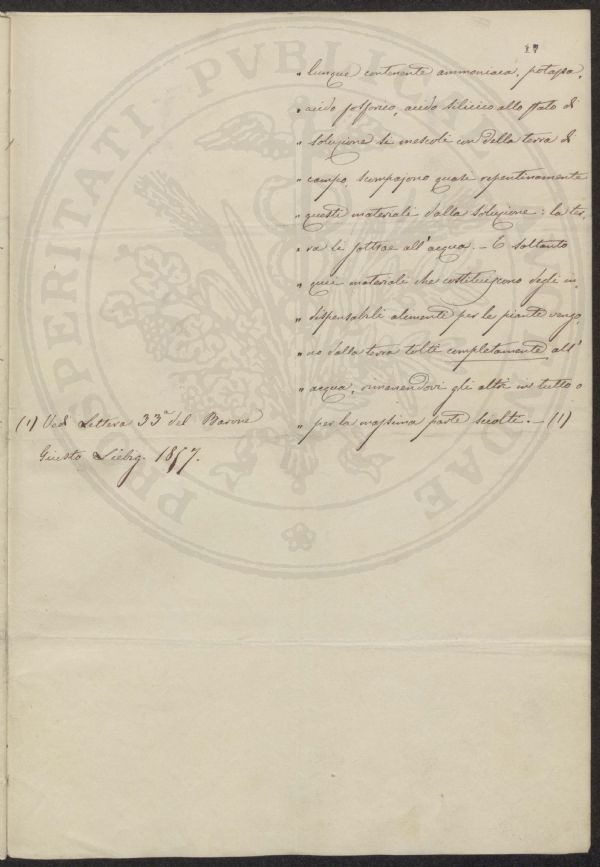 17
" lunque contenente ammoniaca, potassa,
" acido fosforico, acido silicico allo stato di
" soluzione si mescoli con della terra di
" campo, scompajono quasi repentinamente
" questi materiali dalla soluzione: la ter,
" ra li sottrae all'acqua. – E soltanto
" quei materiali che costituiscono degli in,
" dispensabili alimenti per le piante vengo,
" no dalla terra tolti completamente all'
" acqua, rimanendovi gli altri in tutto o
" per la massima parte sciolti. – (1)
(1) Vedi Lettera 33ª del Barone
Giusto Liebig. 1857.
PROSPERITATI PVBLICAE